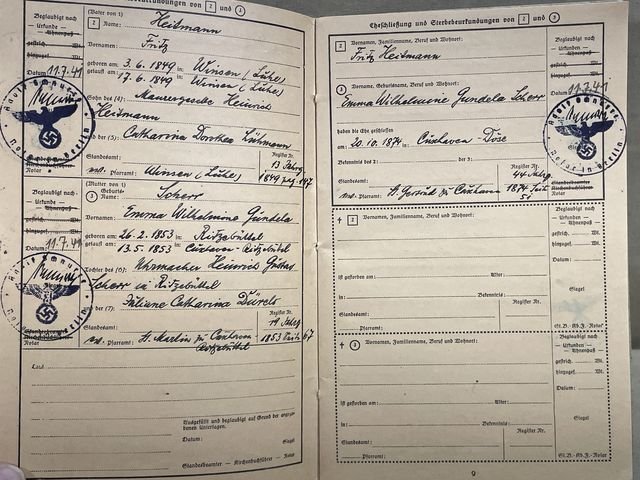 (Vater von 1)
2 Name: Heitmann
Vornamen: Fritz
geboren am: 3.6.1849 in: Winsen (Luhe)
getauft am: 17.6.1849 in: Winsen (Luhe)
Sohn des (4): Maurergeselle Heinrich
Heitmann
der (5): Catharina Dorothea Lühmann
Standesamt:
Pfarramt: Winsen (Luhe)
Register Nr.
1849
Beglaubigt nach
Urkunde
Ahnenpaß
gestrich. Wt.
hinzugef. Wt.
Datum: 11.7.41
Notar
(Mutter von 1)
Geburts-
3 Name: Scherr
Vornamen: Emma Wilhelmine Gundela
geboren am: 26.2.1853 in: Ritzebüttel
getauft am: 13.5.1853 in: Cuxhaven-Ritzebüttel
Tochter des (6): Uhrmacher Heinrich Gustav
Scherr in Ritzebüttel
der (7): Juliane Catharina
Standesamt:
Register Nr.
Pfarramt: St. Martin zu Cuxhaven
Ritzebüttel
1853 Seite 67
Beglaubigt nach
Urkunde
Ahnenpaß
gestrich. Wt.
hinzugef. Wt.
Datum: 11.7.41
Notar
Ausgefüllt und beglaubigt auf Grund der angegebenen Unterlagen.
Datum: Siegel
Standesbeamter - Kirchenbuchführer - Notar
Eheschließung und Sterbebeurkundungen von 2 und 3
2 Vornamen, Familienname, Beruf und Wohnort:
Fritz Heitmann
3 Vorname, Geburtsname, Beruf und Wohnort:
Emma Wilhelmine Gundela Scherr
haben die Ehe geschlossen
am: 20.10.1874 in: Cuxhaven Döse
Bekenntnis des 2: der 3:
Standesamt:
Register Nr.
Pfarramt: St. Gertrud zu Cuxhaven
1874 Seite
51
Beglaubigt nach
Urkunde
Ahnenpaß
gestrich. Wt.
hinzugef. Wt.
Datum: 11.7.41
Notar
† 2 Vornamen, Familienname, Beruf und Wohnort:
Alter:
ist gestorben am: in:
Bekenntnis: Register Nr.
Standesamt:
Pfarramt:
Beglaubigt nach
Urkunden - Ahnenpaß
gestrich. Wt.
hinzugef. Wt.
Datum:
Siegel
St.B.-Kb.F.-Notar
† 3 Vornamen, Familienname, Beruf und Wohnort:
Alter:
ist gestorben am: in:
Bekenntnis: Register Nr.
Standesamt:
Pfarramt:
Beglaubigt nach
Urkunden - Ahnenpaß
gestrich. Wt.
hinzugef. Wt.
Datum:
Siegel
St.B.-Kb.F.-Notar
9